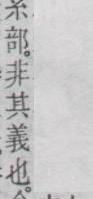 糸部。非其義也。